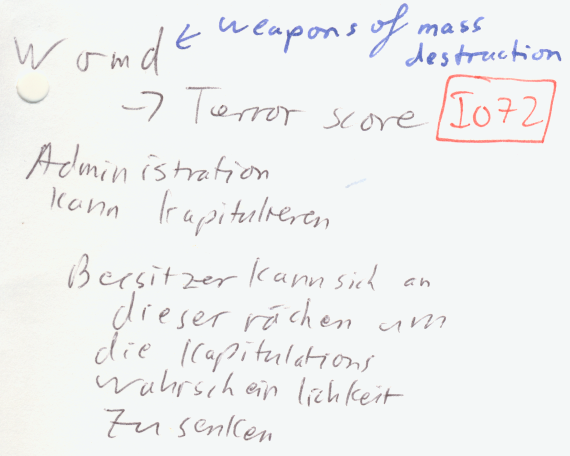 Womd ← weapons of mass
destruction
→ Terror score Io72
Administration
kann kapitulieren
Besitzer kann sich an
dieser rächen um
die Kapitulations
wahrscheinlichkeit
zu senken